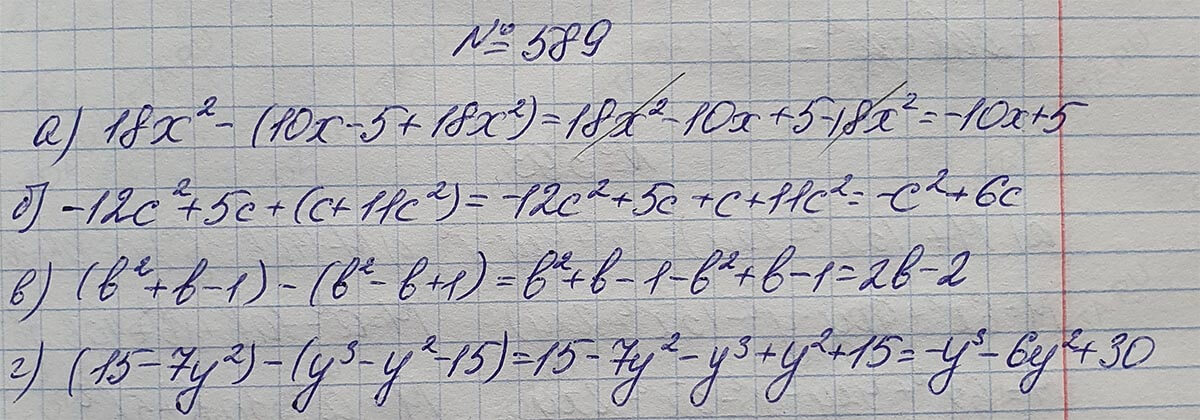 № 589
а) 18x² - (10x - 5 + 18x²) = 18x² - 10x + 5 - 18x² = -10x + 5
б) -12c² + 5c + (c + 11c²) = -12c² + 5c + c + 11c² = -c² + 6c
в) (b² + b - 1) - (b² - b + 1) = b² + b - 1 - b² + b - 1 = 2b - 2
г) (15 - 7y²) - (y³ - y² - 15) = 15 - 7y² - y³ + y² + 15 = -y³ - 6y² + 30